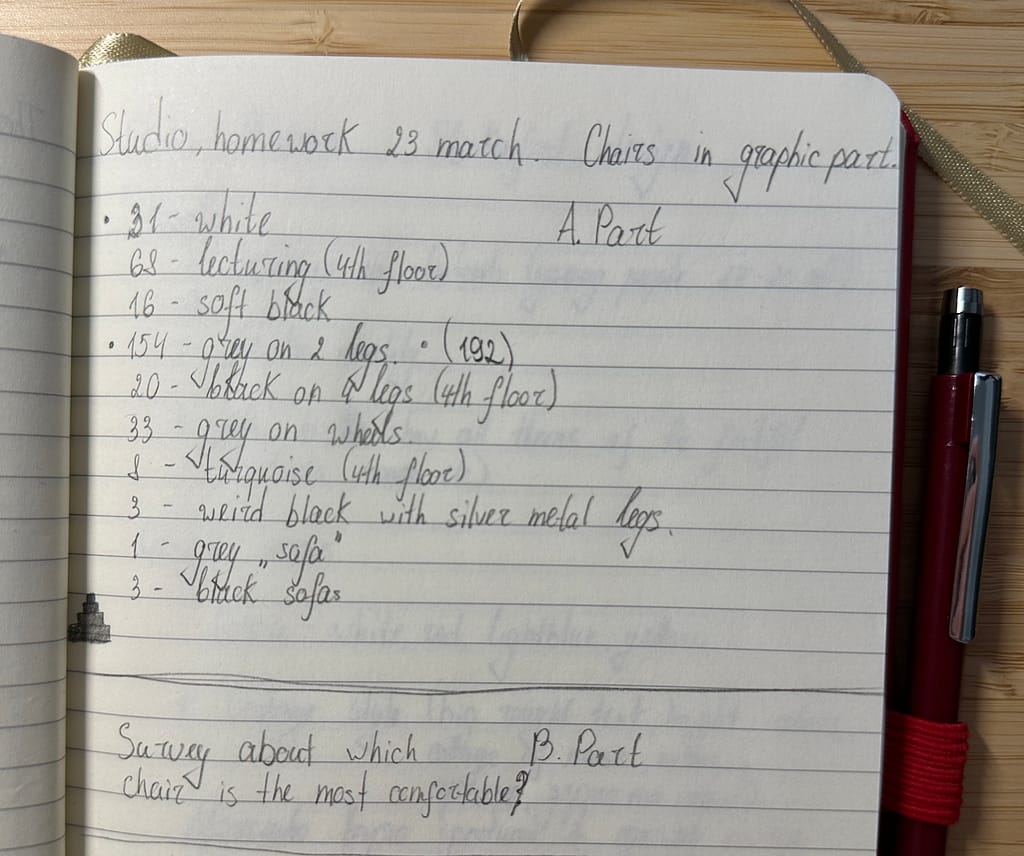 Studio, homework 23 march. Chairs in graphic part.
• 31 - white A. Part
68 - lecturing (4th floor)
16 - soft black
• 154 - grey on 2 legs. • (192)
20 - black on 4 legs (4th floor)
33 - grey on wheels
8 - turquoise (4th floor)
3 - weird black with silver metal legs.
1 - grey „sofa"
3 - black sofas
Survey about which B. Part
chair is the most comfortable?